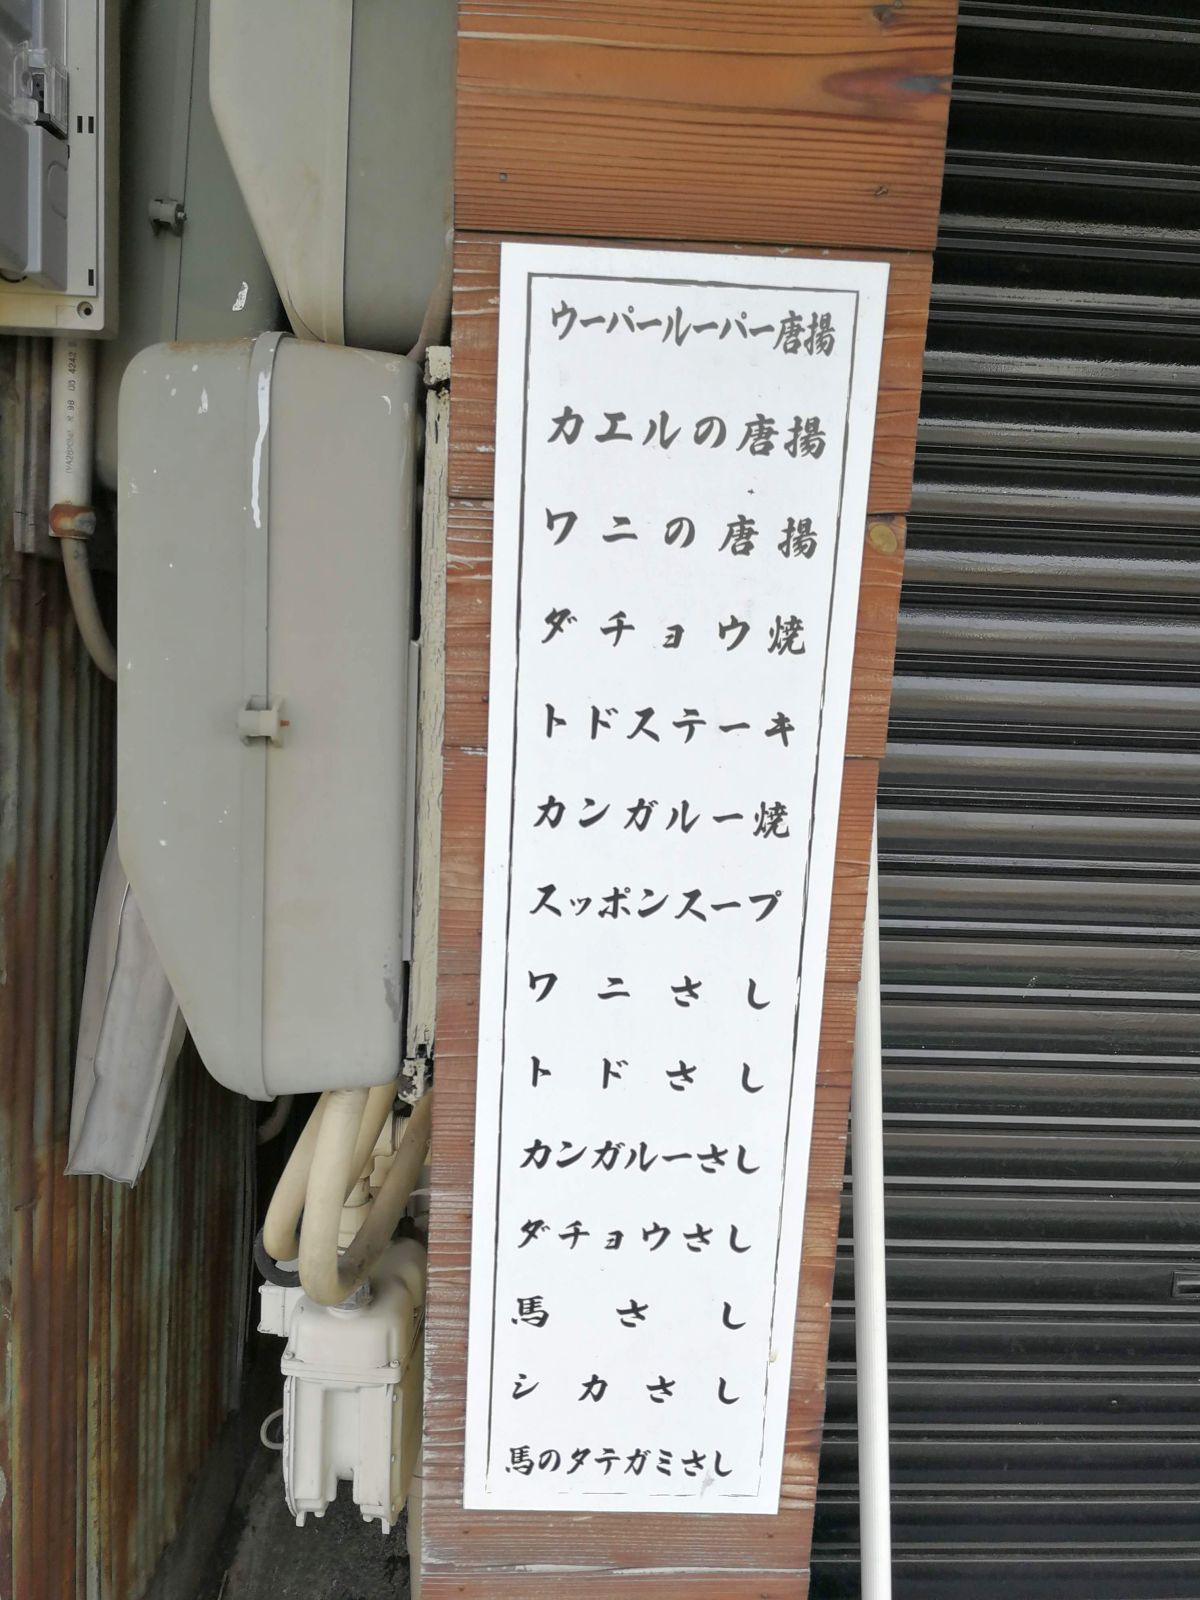 ウーパールーパー唐揚
カエルの唐揚
ワニの唐揚
ダチョウ焼
トドステーキ
カンガルー焼
スッポンスープ
ワニさし
トドさし
カンガルーさし
ダチョウさし
馬さし
シカさし
馬のタテガミさし